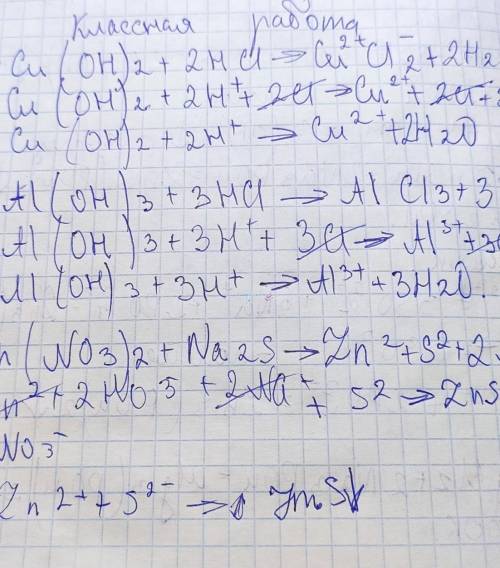 Классная работа
Cu(OH)2 + 2HCl → Cu²⁺Cl₂⁻ + 2H2
Cu(OH)2 + 2H⁺ + 2Cl → Cu²⁺ + 2Cl +
Cu(OH)2 + 2H⁺ → Cu²⁺ + 2H2O
Al(OH)3 + 3HCl → AlCl3 + 3
Al(OH)3 + 3H⁺ + 3Cl → Al³⁺ + 3
Al(OH)3 + 3H⁺ → Al³⁺ + 3H2O.
n(NO3)2 + Na2S → Zn² + S² + 2
n² + 2NO3⁻ + 2Na⁺ + S² → ZnS
NO3⁻
Zn2⁺ + S²⁻ → ZnS↓